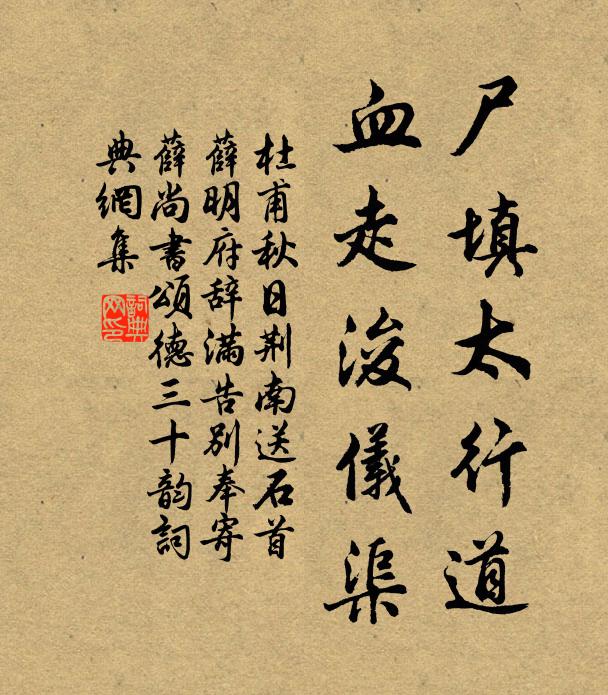 尸填太行道
血走浚儀渠
杜甫秋日荆南送石首
薛明府辞滿告别奉寄
薛尚書頌德三十韵詞
典網集
詞典
网印